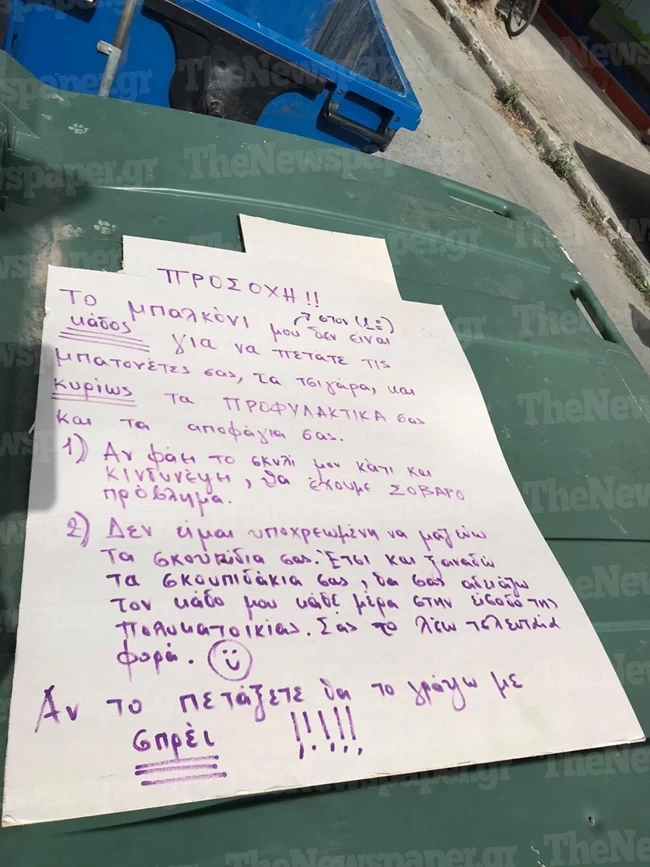 ΠΡΟΣΟΧΗ!!
→ στον (1ο)
Το μπαλκόνι μου δεν είναι
κάδος για να πετάτε τις
μπατονέτες σας, τα τσιγάρα, και
κυρίως τα ΠΡΟΦΥΛΑΚΤΙΚΑ σας
και τα αποφάγια σας.
1) Αν φάει το σκυλί μου κάτι και
κινδυνέψη, θα έχουμε ΣΟΒΑΡΟ
πρόβλημα.
2) Δεν είμαι υποχρεωμένη να μαζεύω
τα σκουπίδια σας. Έτσι και ξαναδώ
τα σκουπιδάκια σας, θα σας αδειάζω
τον κάδο μου κάθε μέρα στην είσοδο της
πολυκατοικίας. Σας το λέω τελευταία
φορά. ☺
Αν το πετάξετε θα το γράψω με
σπρέι !!!!!
TheNewspaper.gr